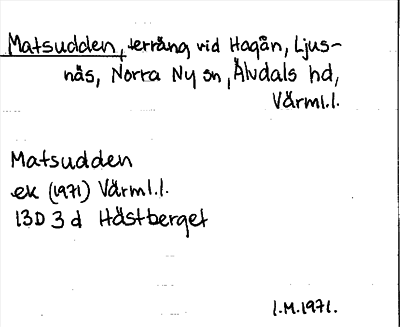 Matsudden, terräng vid Hagån, Ljus-
näs, Norra Ny sn, Älvdals hd,
Värml.l.
Matsudden
ek (1971) Värml.l.
13D 3d Hästberget
I.M.1971.